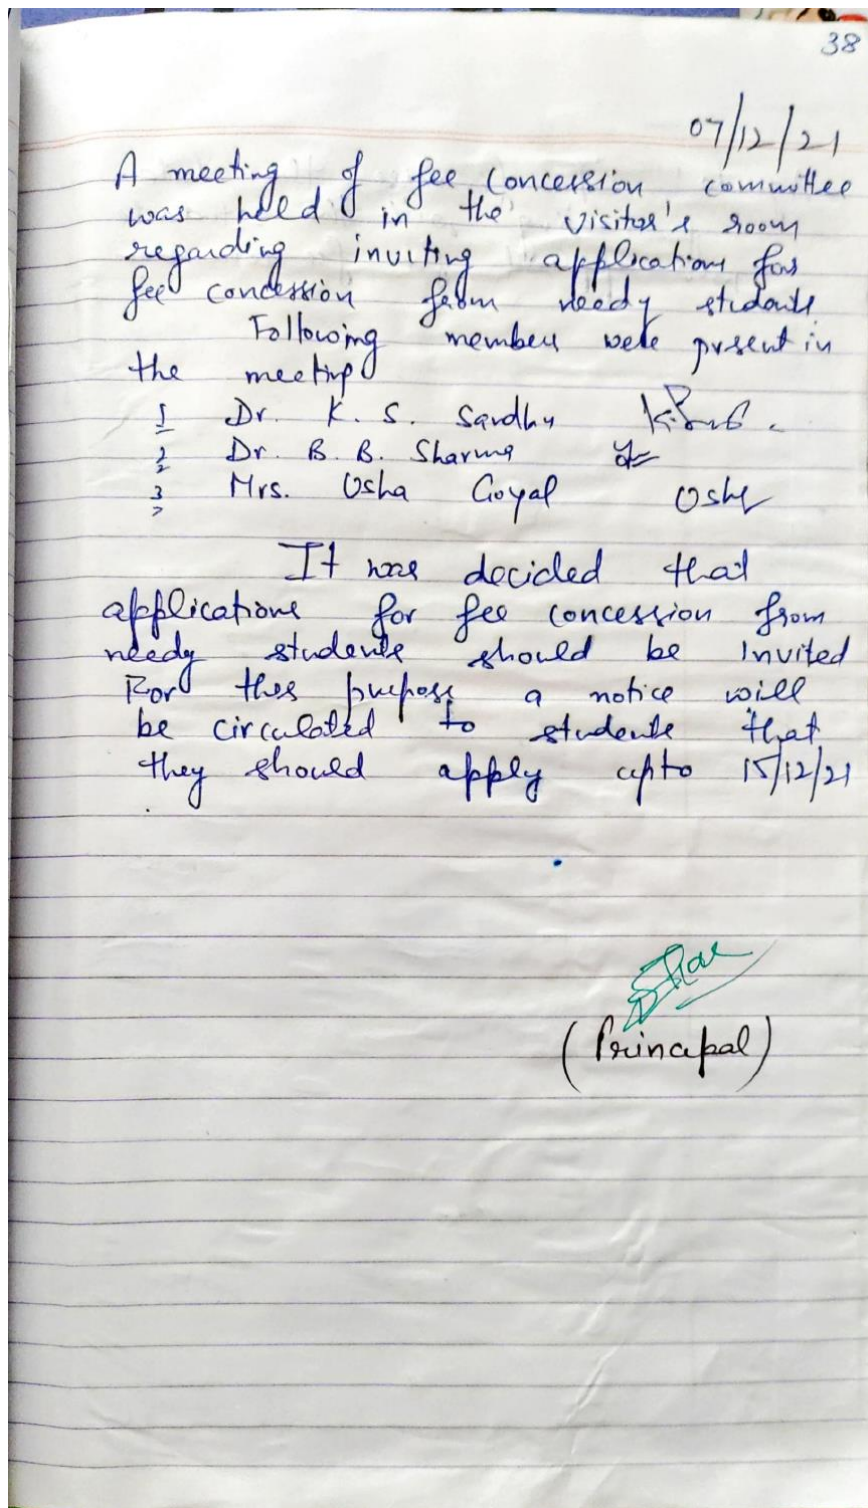 38
07/12/21
A meeting of fee concession committee
was held in the visitor's room
regarding inviting applications for
fee concession from needy students
Following members were present in
the meeting
1 Dr. K. S. Sandhu
2 Dr. B. B. Sharma
3 Mrs. Usha Goyal Usha
It was decided that
applications for fee concession from
needy students should be Invited
For this purpose a notice will
be circulated to students that
they should apply upto 15/12/21
(Principal)